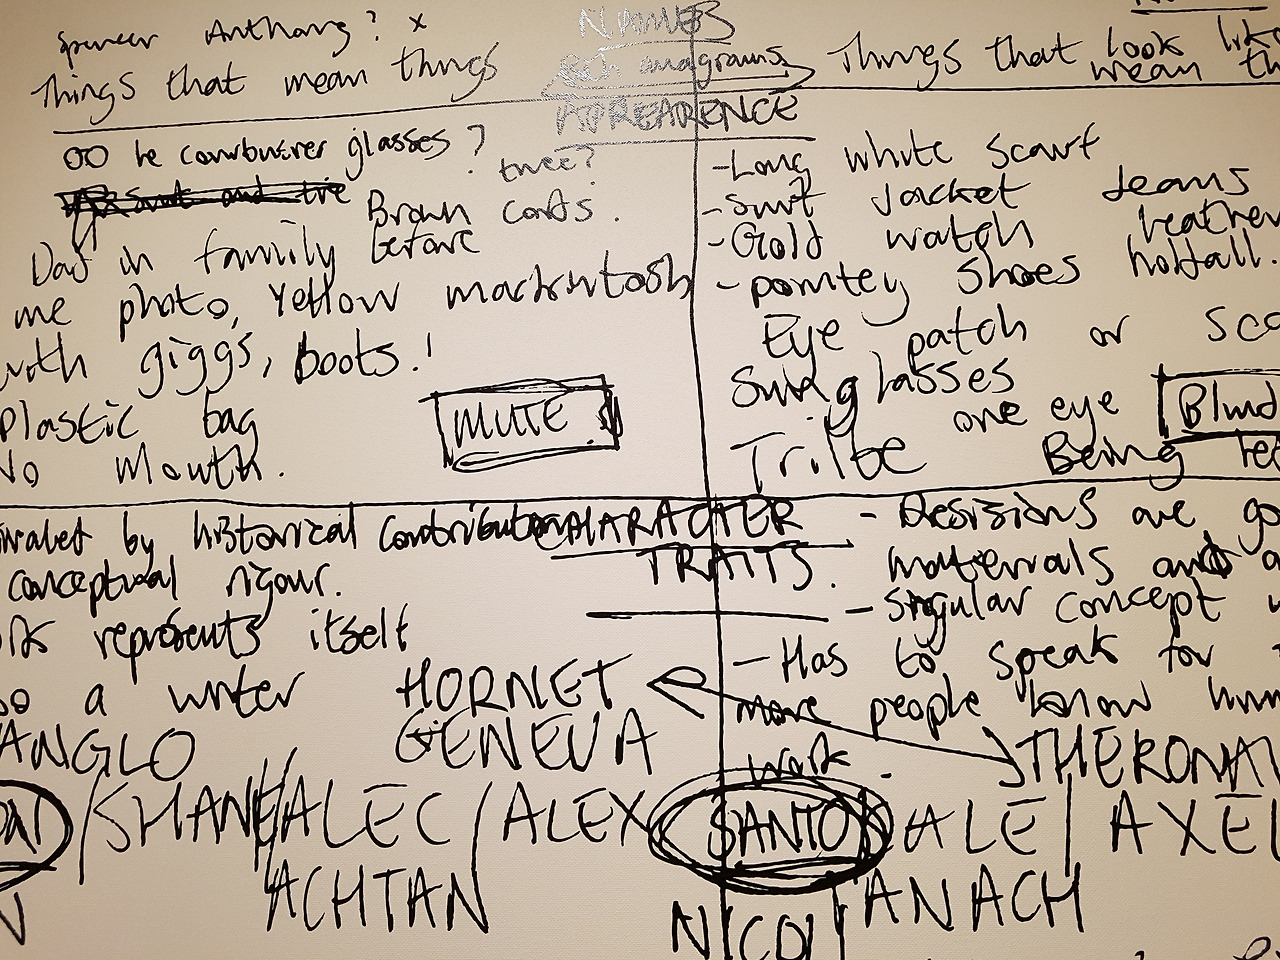 Spencer Anthony? x
NAMES
Things that mean things
Both anagrams
Things that look like
mean th
APPEARENCE
OO le courbusier glasses?
tweed?
suit and tie
Brown cords.
Dad in family before
me photo, Yellow mackintosh
with giggs, boots!
Plastic bag
No Mouth.
MUTE
-Long white scarf
-Suit Jacket Jeans
-Gold watch leather
-pointey shoes holdall.
Eye patch or
Sunglasses
one eye
Blind
Tribe Being
CHARACTER
TRAITS.
by historical contribution
conceptual rigour.
represents itself
a writer
HORNET
GENEVA
ANGLO
/SHANE/ALEC/ALEX
ACHTAN
- Desisions are go
materials and
- Singular concept
- Has to speak for
more people know
work.
THERON
SANTO ALE / AXEL
NICOL ANACH